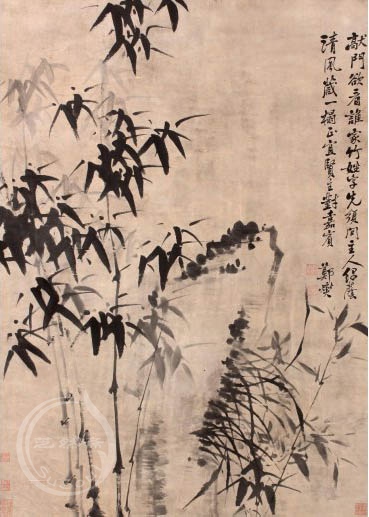 敲門欲看誰家竹姓字先須問主人綠蔭
清風藏一榻正宜賢主對嘉賓
鄭燮